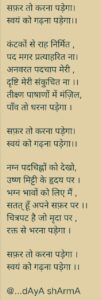 सफ़र तो करना पड़ेगा।
स्वयं को गढ़ना पड़ेगा।।
कंटकों से राह निर्मित ,
पद मगर प्रत्याहरित ना।
अनवरत पदचाप मेरी ,
दृष्टि मेरी संकुचित ना ।।
तीक्ष्ण पाषाणों में मंज़िल,
पाँव तो धरना पड़ेगा ।
सफ़र तो करना पड़ेगा।
स्वयं को गढ़ना पड़ेगा।।
नग्न पदचिह्नों को देखो,
उष्ण मिट्टी के हृदय पर ।
भग्न भावों को लिए मैं ,
सतत् हूँ अपने सफ़र पर ।।
चित्रपट है जो मृदा पर ,
रक्त से भरना पड़ेगा ।
सफ़र तो करना पड़ेगा ।
स्वयं को गढ़ना पड़ेगा ।।
@...dAyA shArmA